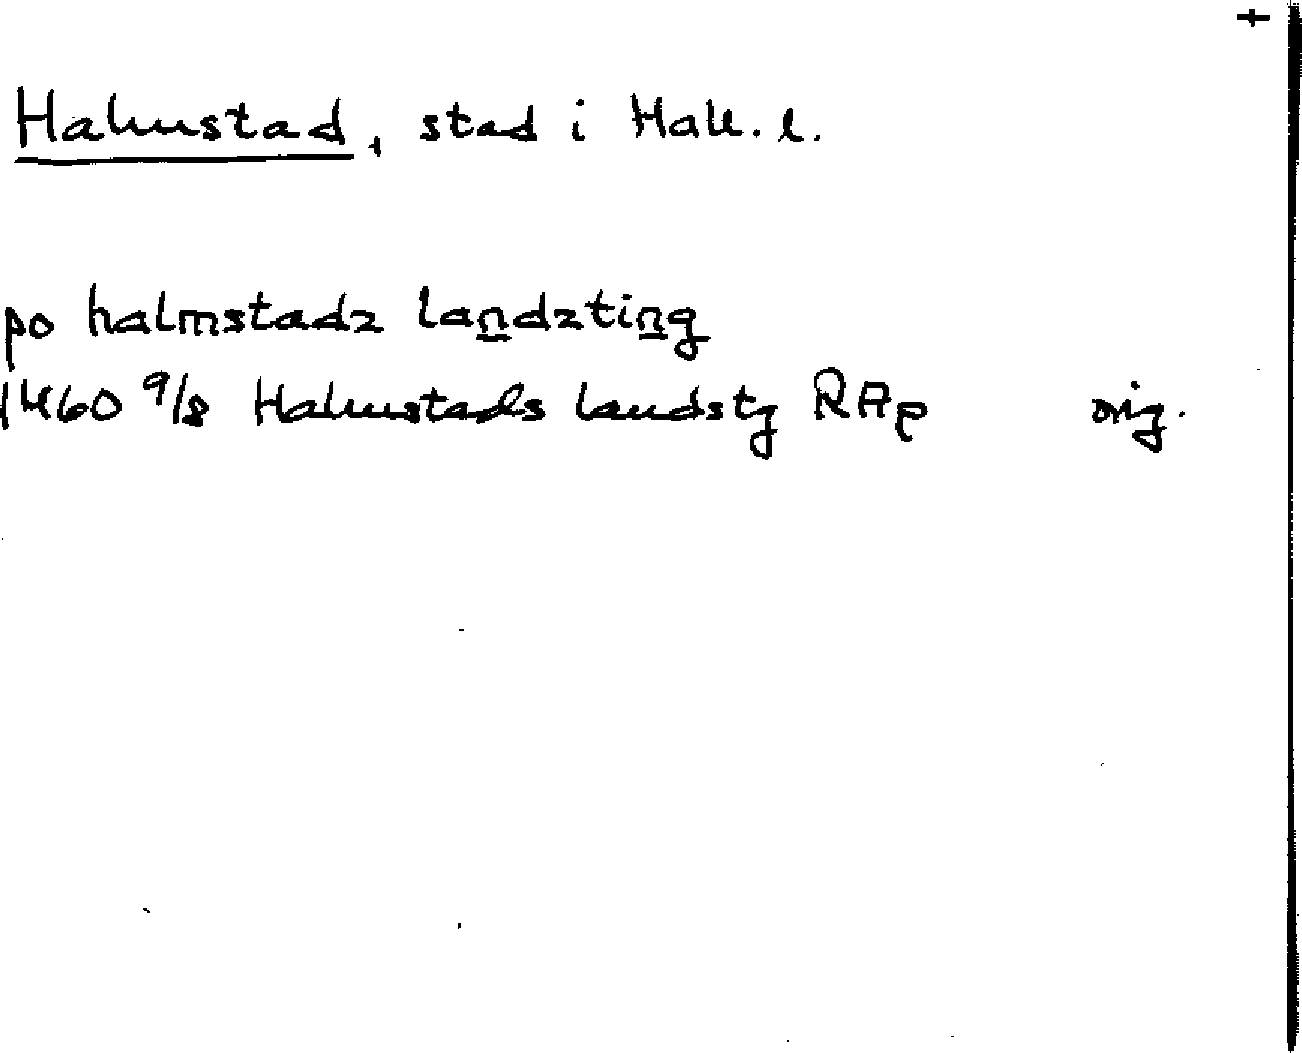 +
Halmstad, stad i Hall. l.
po halmstadz landzting
1460 9/8 Halmstads landstg RAp orig.